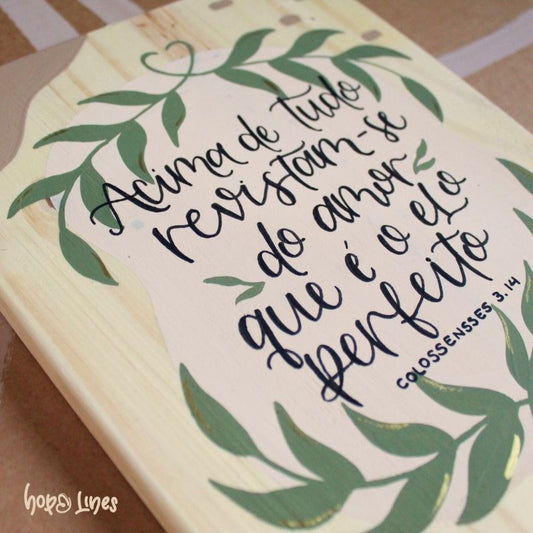 Acima de tudo
revistam-se
do amor
que é o elo
perfeito
COLOSSENSSES 3.14
hope Lines